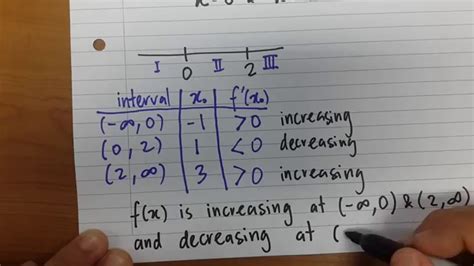 I 0 II 2 III
interval x₀ f'(x₀)
(-∞, 0) -1 >0 increasing
(0, 2) 1 <0 decreasing
(2, ∞) 3 >0 increasing
f(x) is increasing at (-∞,0) & (2,∞)
and decreasing at (